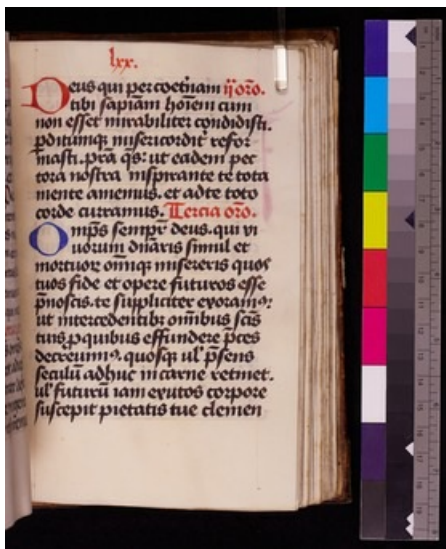 lxx.
Deus qui per coet̄nam ij oro.
tibi sapiām hoīem cum
non esset mirabiliter condidisti.
p̄ditumq; misericordit' refor
masti. pr̄a q̄s: ut eadem pec
tora nostra inspirante te tota
mente amemus. et ad te toto
corde curramus. Tercia oro.
Omp̄s semp̄r deus. qui vi
uorum dn̄aris simul et
mortuor om̄iq; misereris quos
tuos fide et opere futuros esse
p̄noscis. te suppliciter exoram⁹:
ut intercedentib; om̄ibus sc̄is
tuis p̄ quibus effundere p̄ces
decreuim⁹. quosq; ul' p̄sens
seculū adhuc in carne retinet.
ul' futurū iam exutos corpore
suscepit pietatis tue clemen